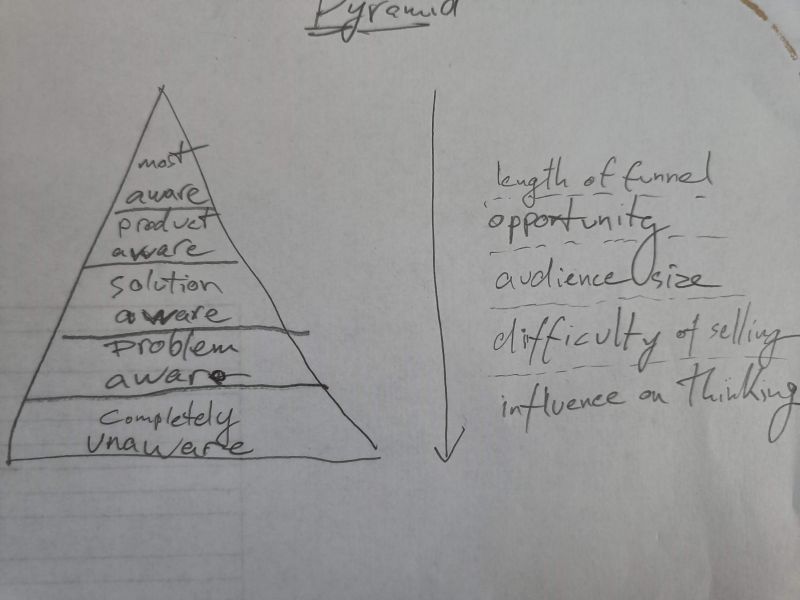 Pyramid
most
aware
product
aware
solution
aware
problem
aware
completely
unaware
length of funnel
opportunity
audience size
difficulty of selling
influence on thinking